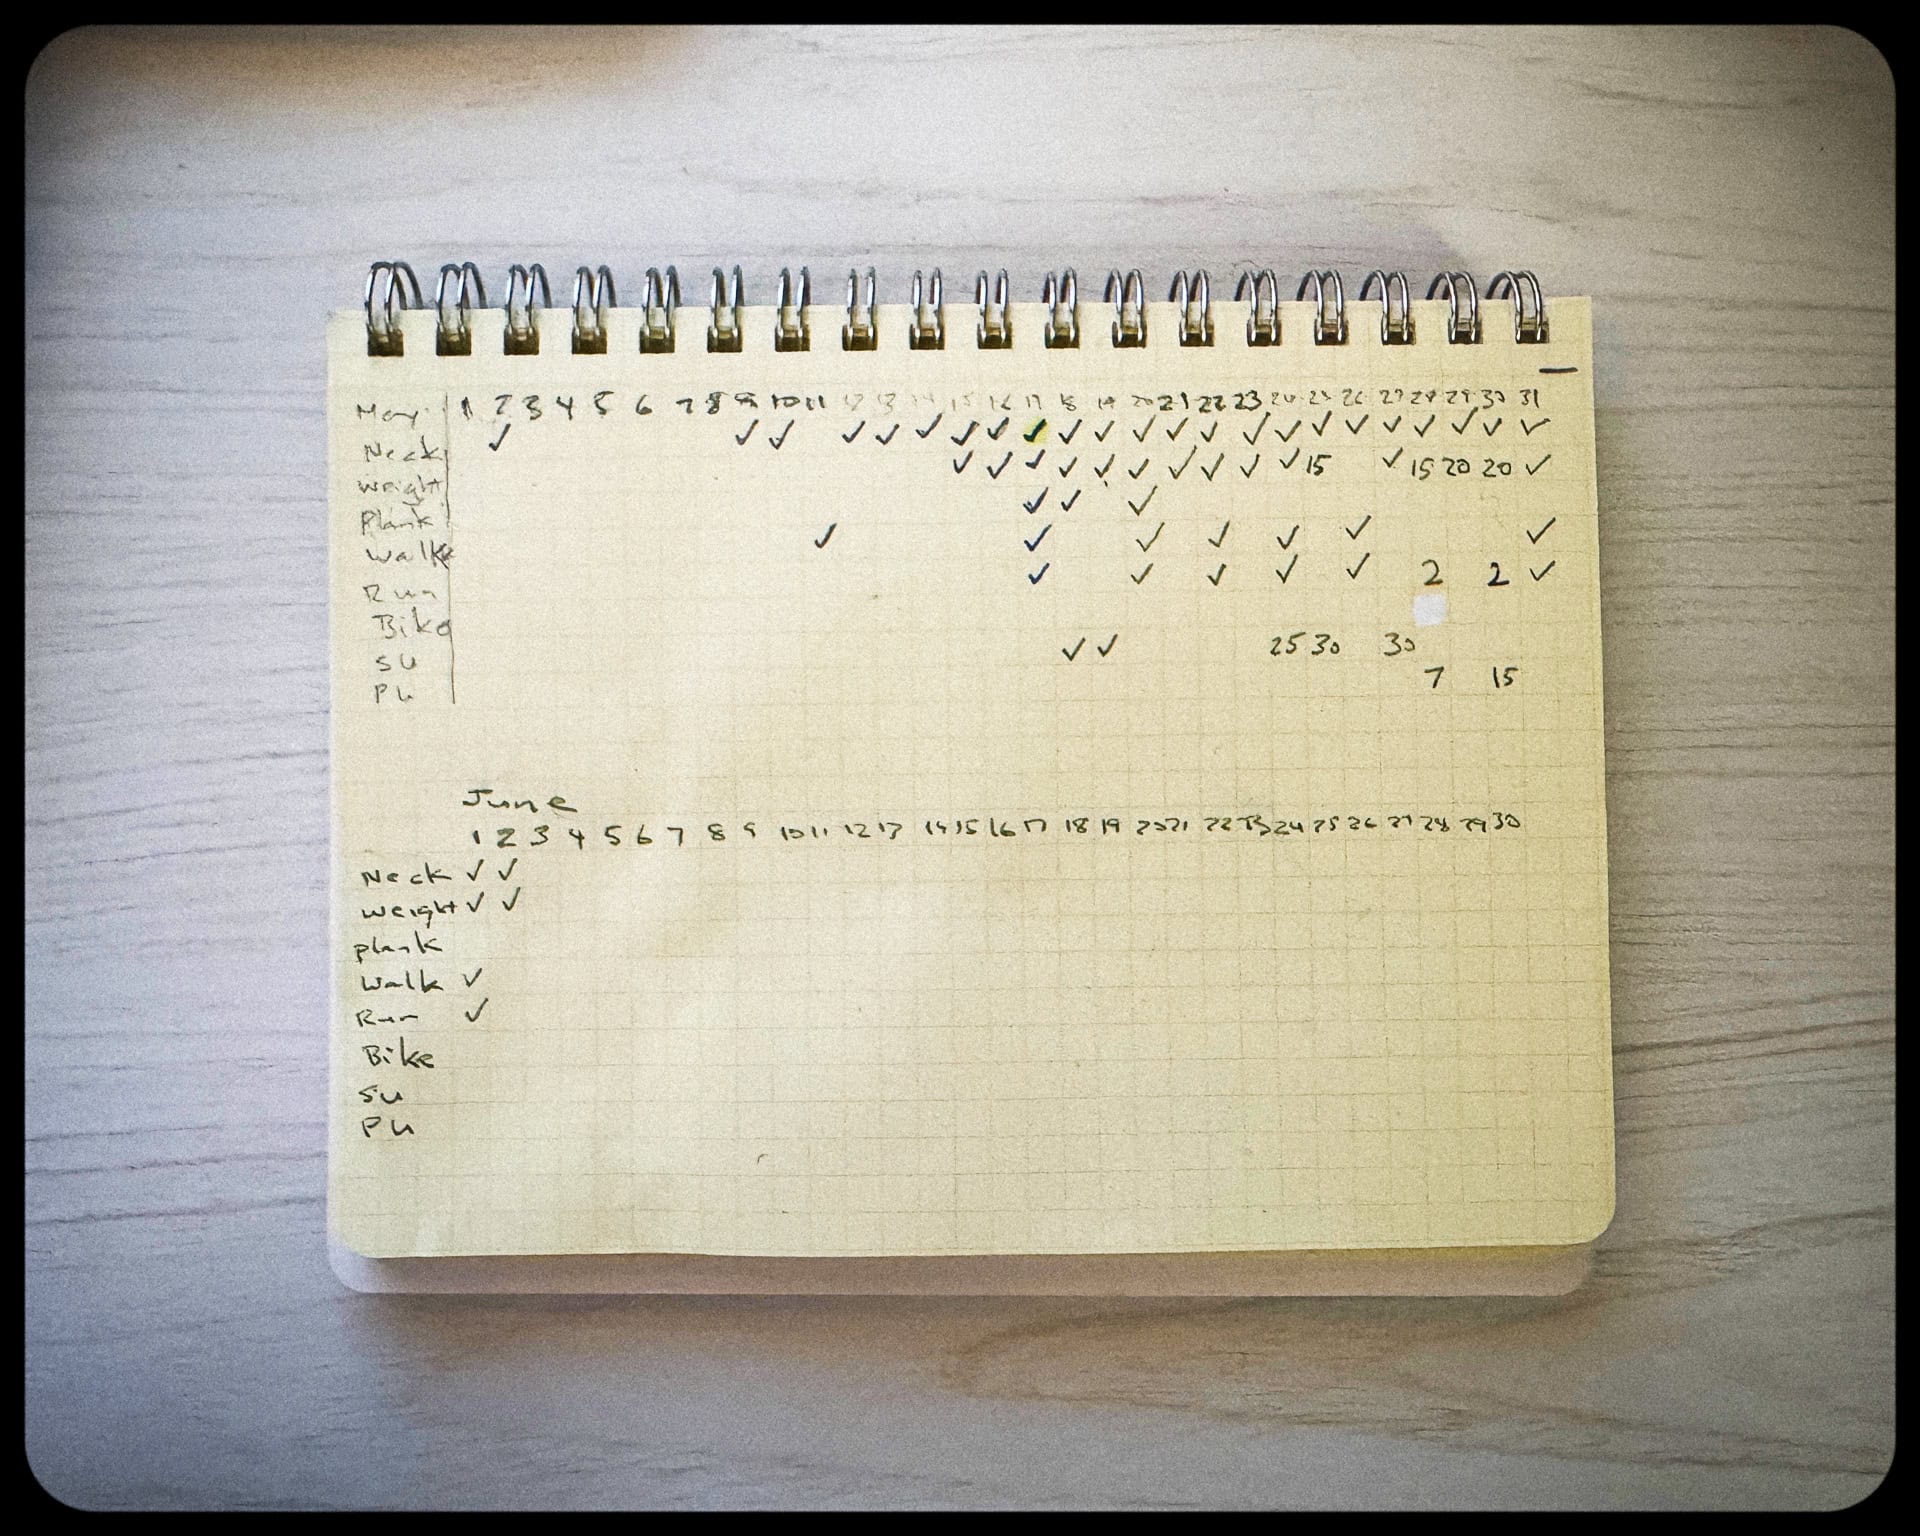 May 1 2 3 4 5 6 7 8 9 10 11 12 13 14 15 16 17 18 19 20 21 22 23 24 25 26 27 28 29 30 31
Neck ✓ ✓ ✓ ✓ ✓ ✓ ✓ ✓ ✓ ✓ ✓ ✓ ✓ ✓ ✓ ✓ ✓ ✓ ✓ ✓ ✓ ✓ ✓
Weight ✓ ✓ ✓ ✓ ✓ ✓ ✓ ✓ ✓ ✓ 15 ✓ 15 20 20 ✓
Plank ✓ ✓ ✓
Walk ✓ ✓ ✓ ✓ ✓ ✓ ✓
Run ✓ ✓ ✓ ✓ ✓ 2 2 ✓
Bike
SU ✓ ✓ 25 30 30
PU 7 15
June
1 2 3 4 5 6 7 8 9 10 11 12 13 14 15 16 17 18 19 20 21 22 23 24 25 26 27 28 29 30
Neck ✓ ✓
Weight ✓ ✓
plank
Walk ✓
Run ✓
Bike
SU
PU